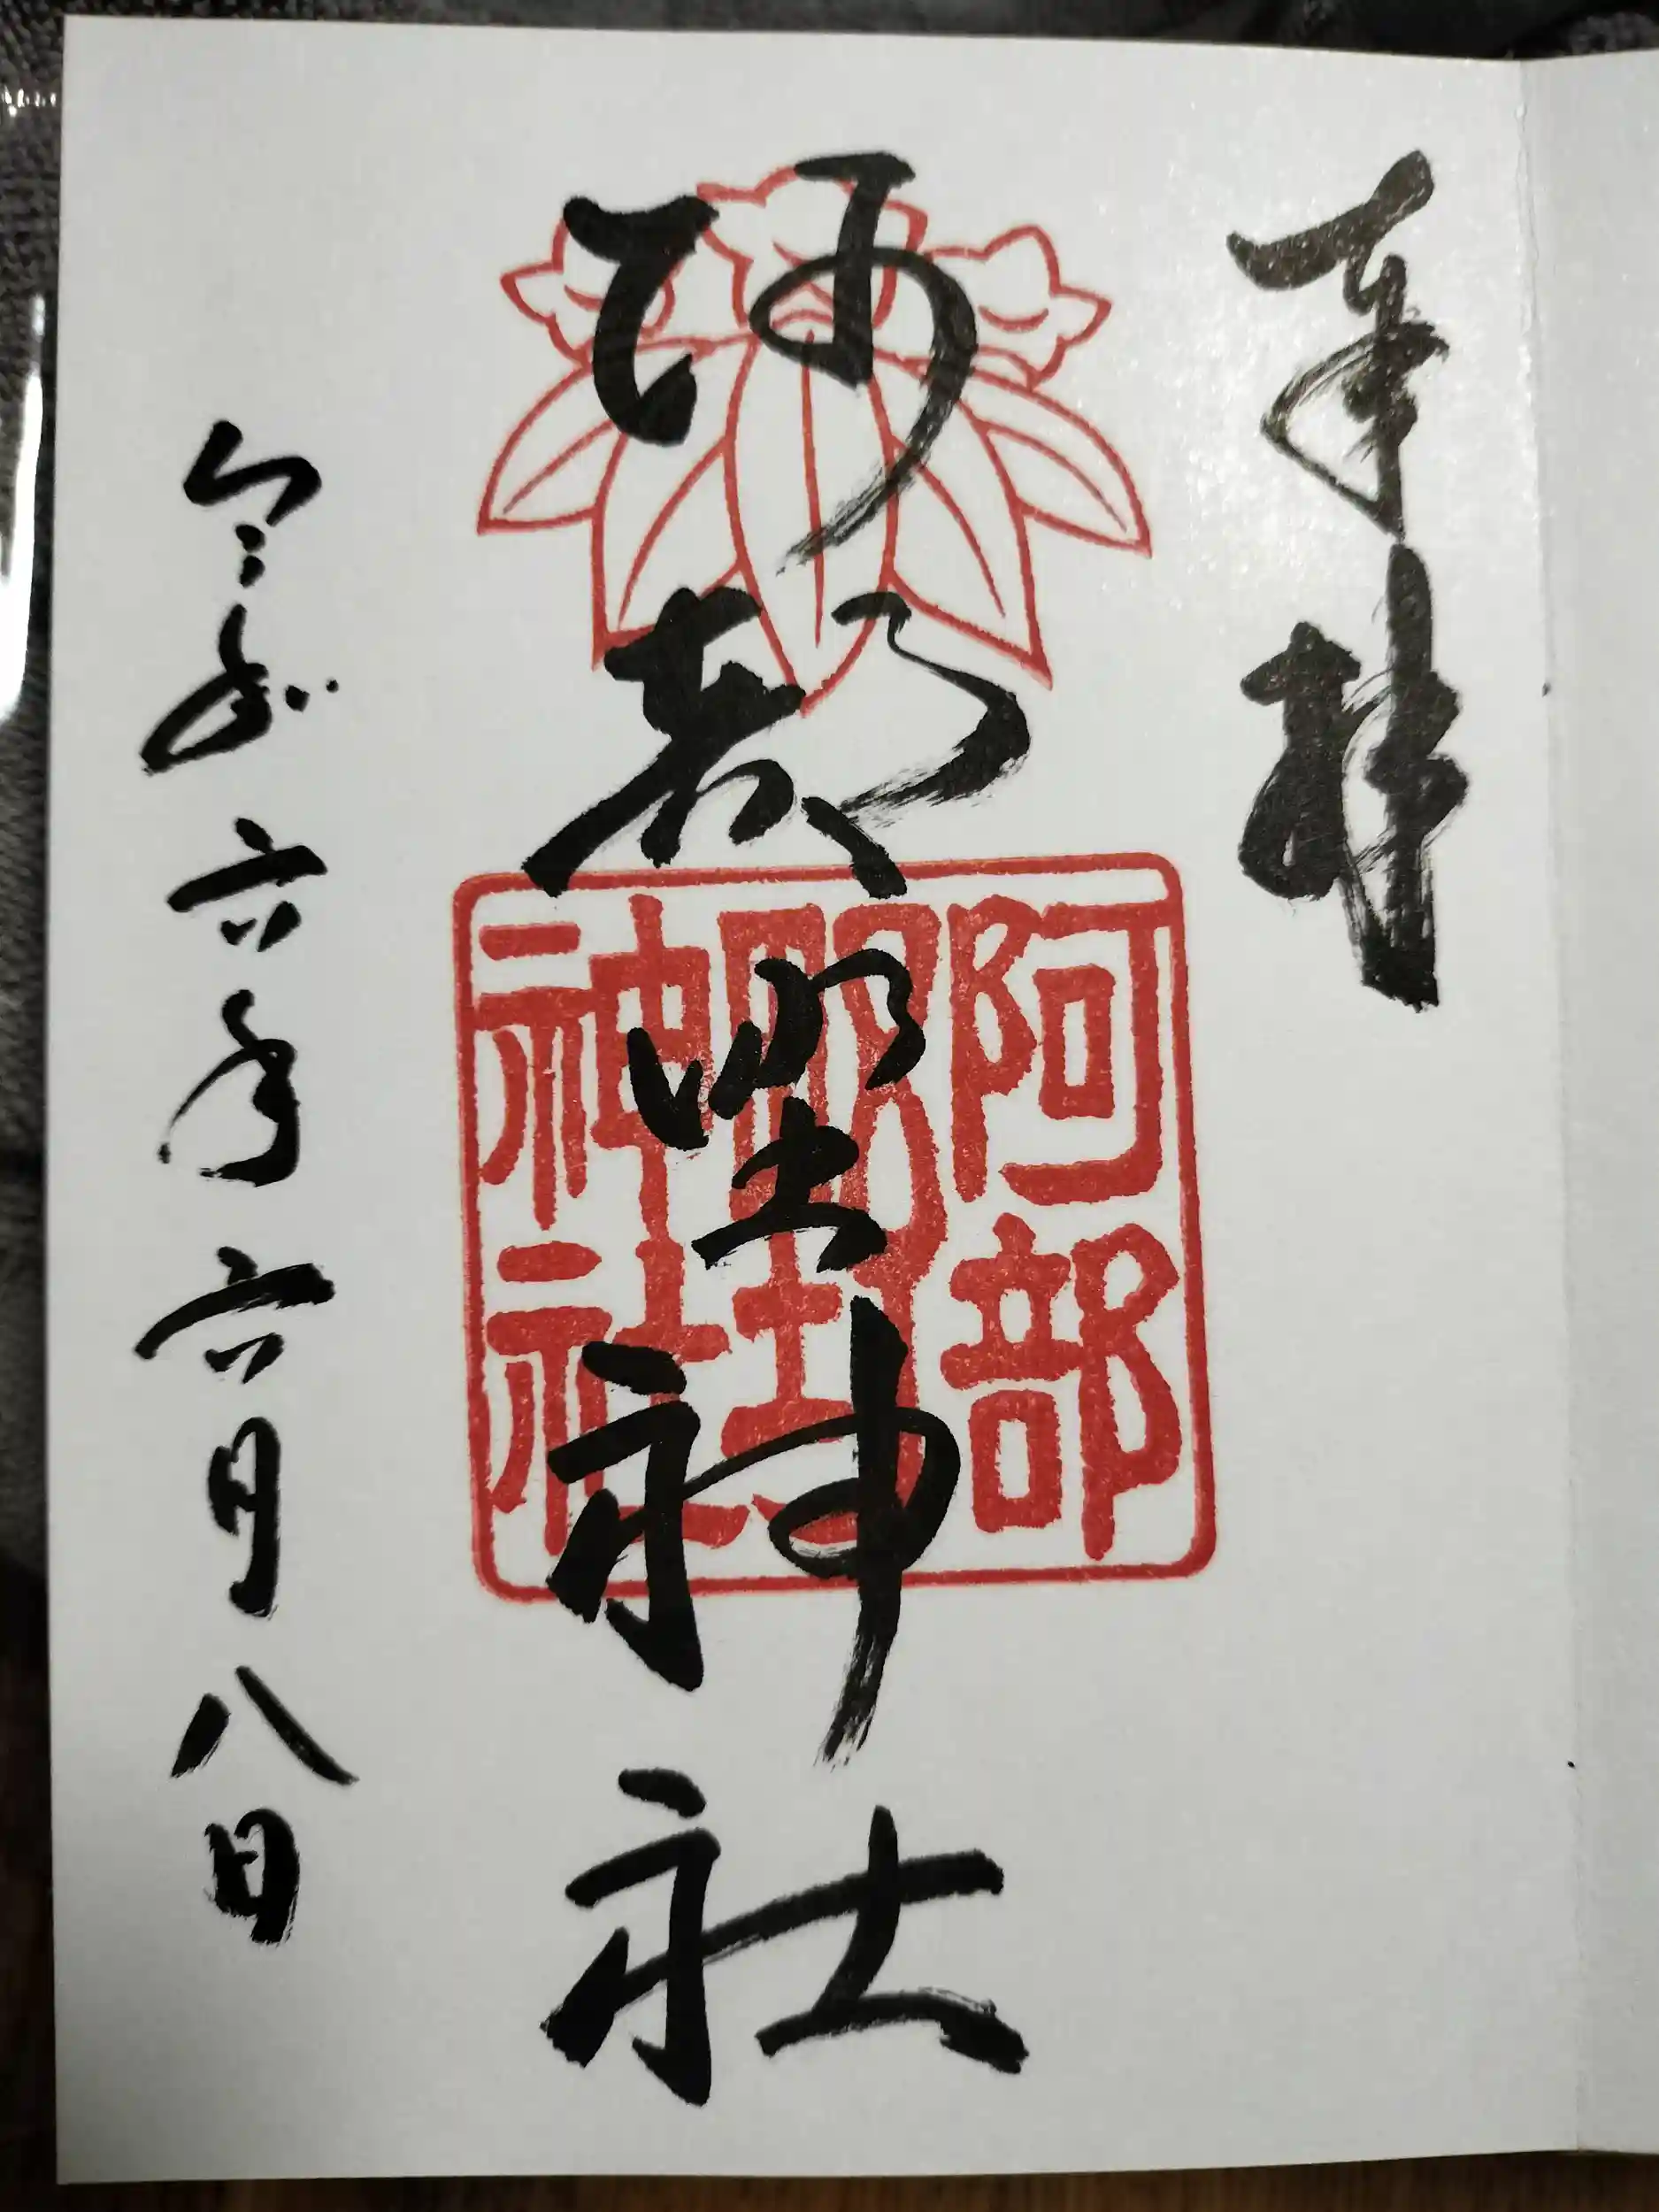 奉拝
阿部野神社
阿部
野
神社
令和六年六月八日